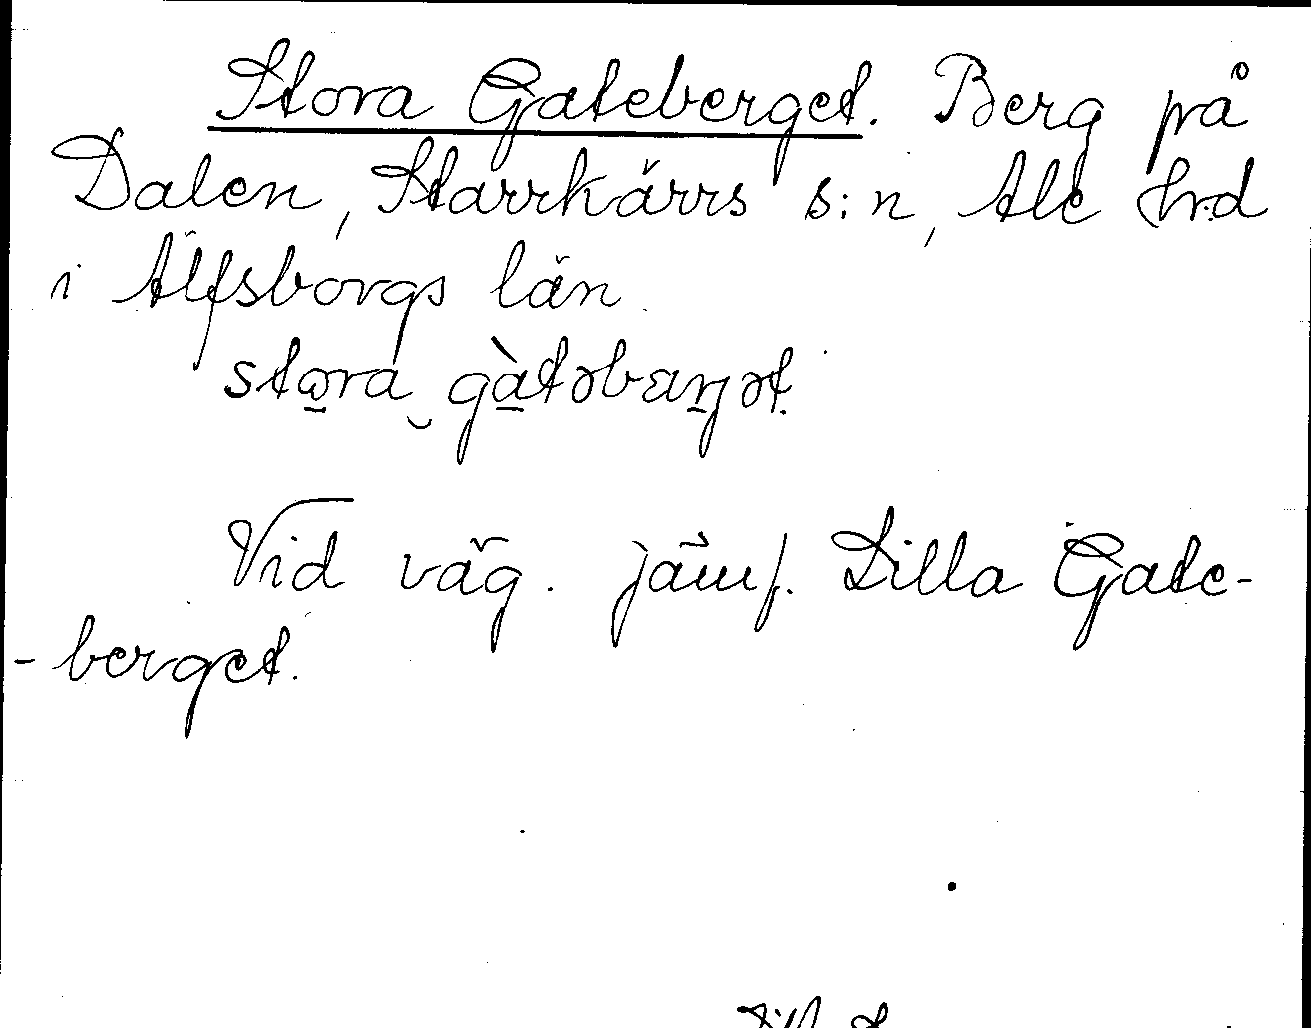 Stora Gateberget. Berg på
Dalen, Starrkärrs s:n, Ale hrd
i Älfsborgs län.
Vid väg. jämf. Lilla Gate-
-berget.